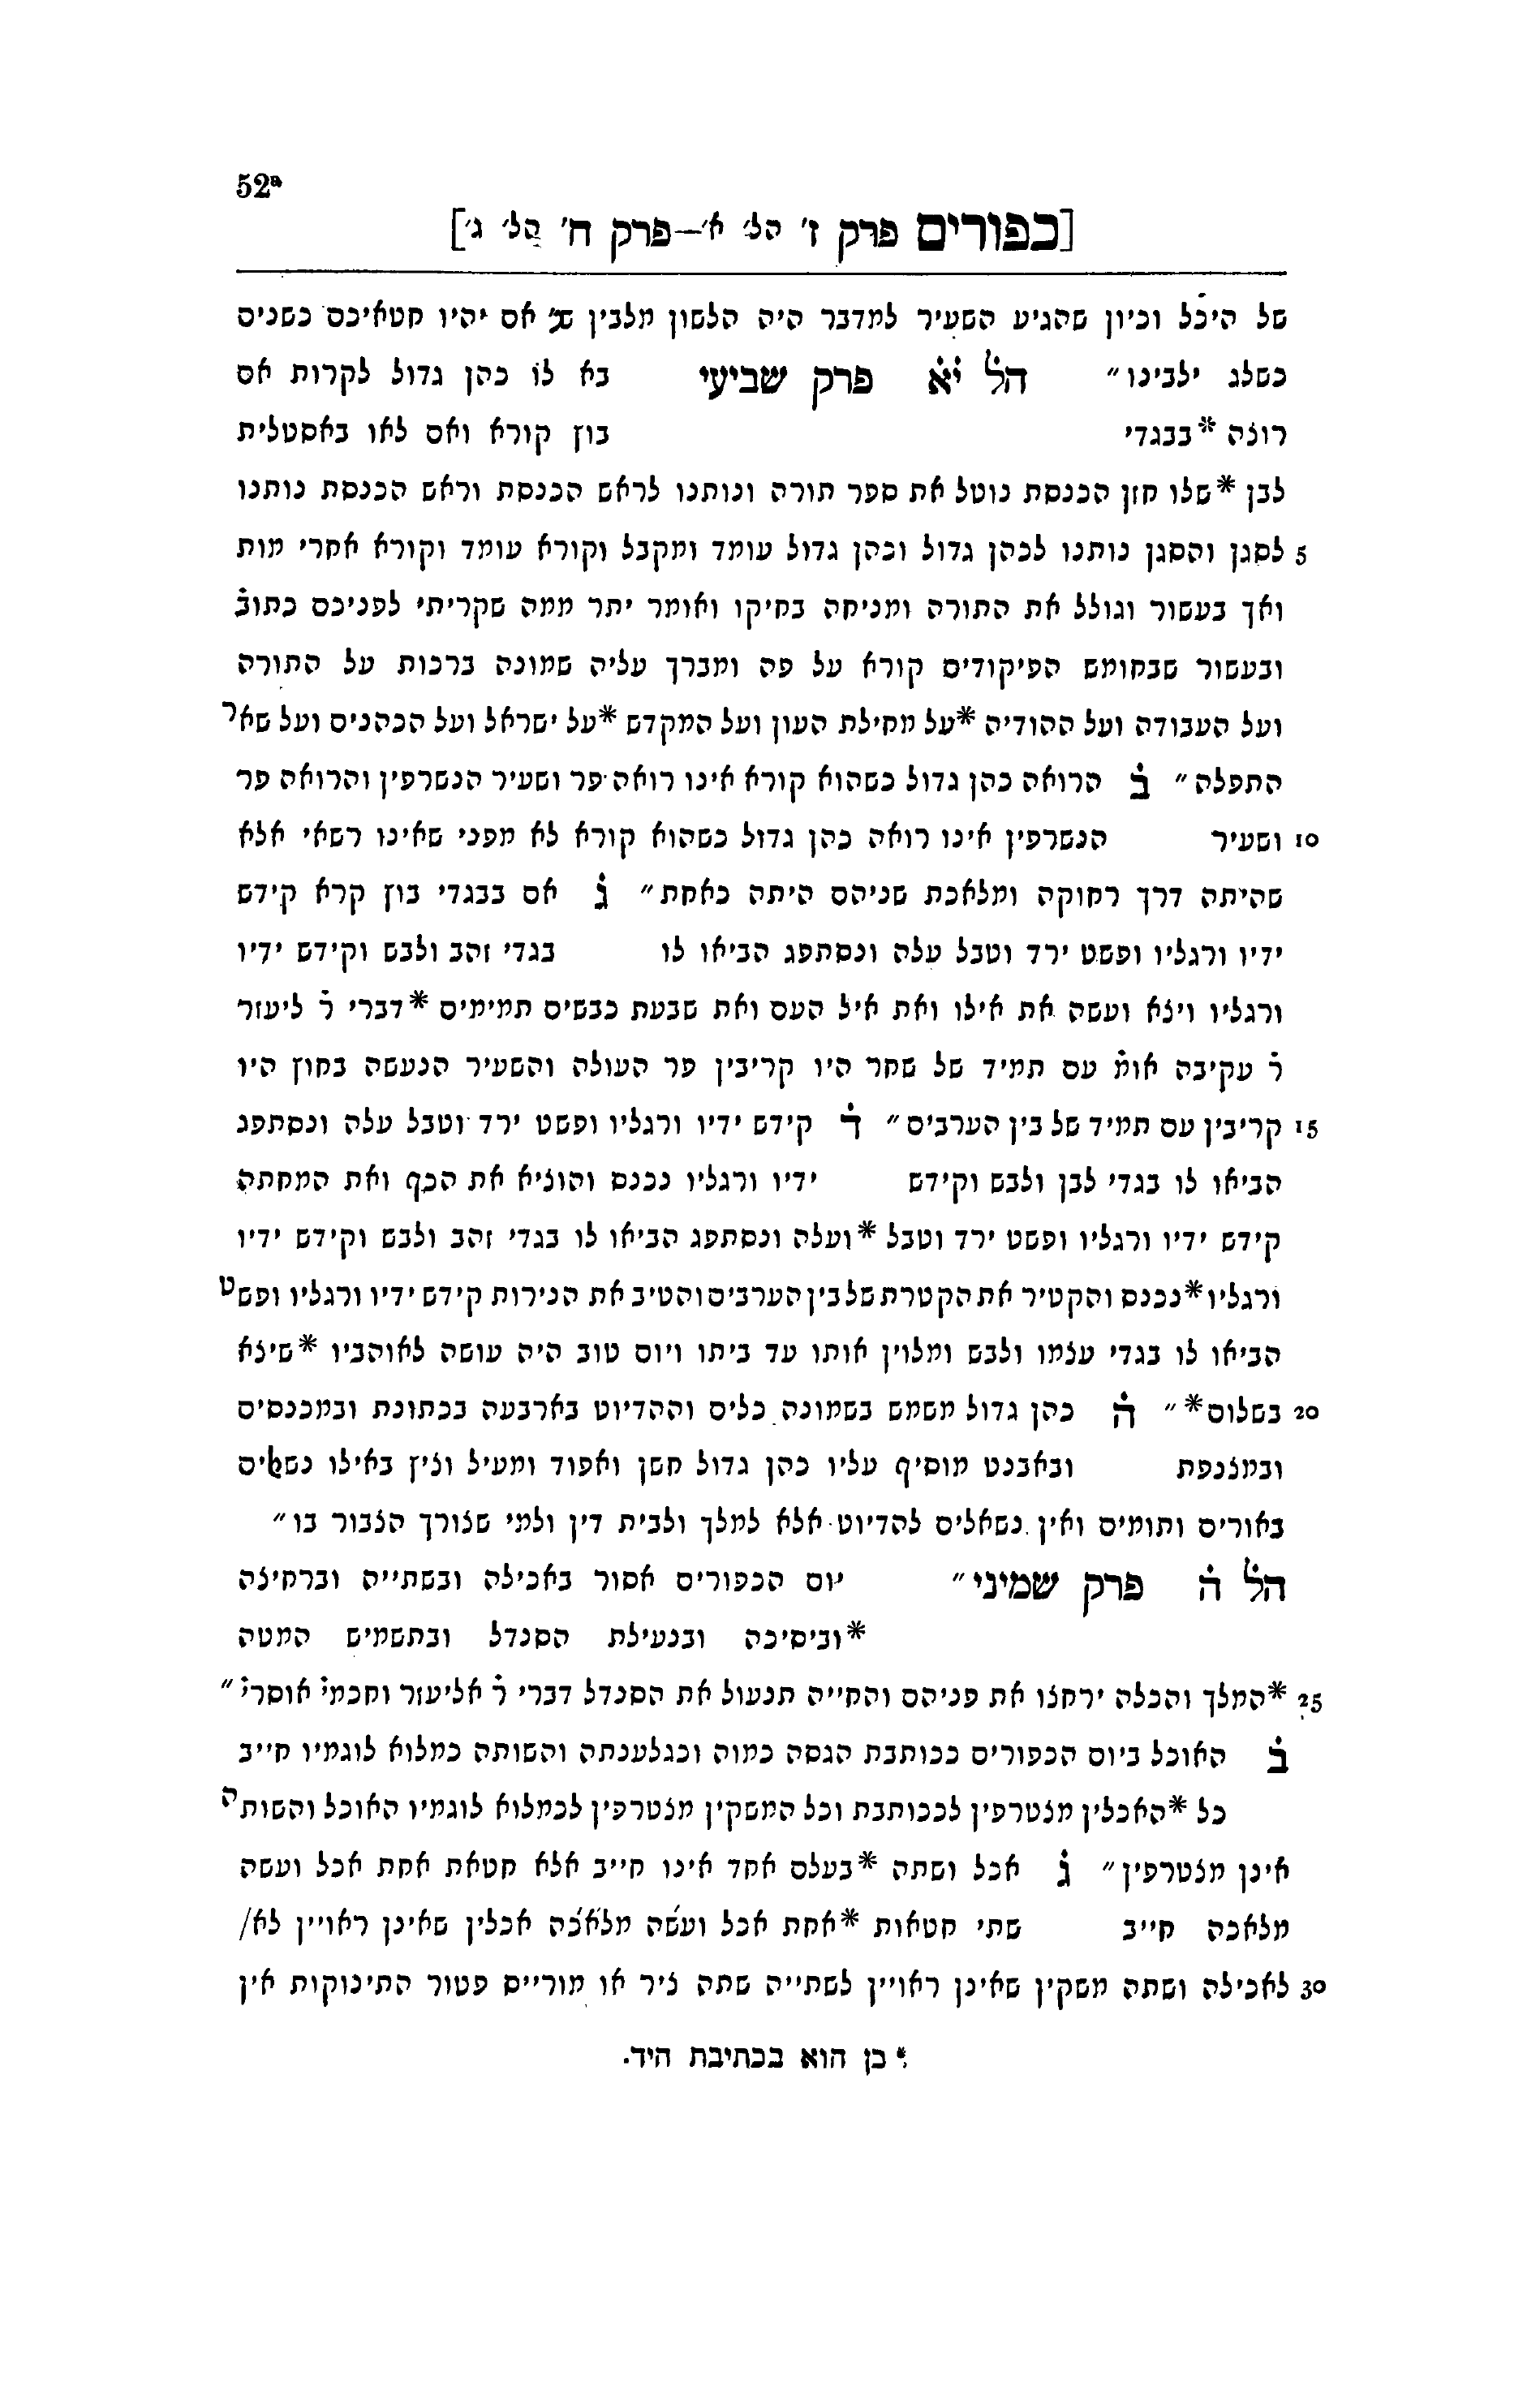 52ª
[כפורים פרק ז׳ הל׳ א׳—פרק ח׳ הל׳ ג׳]
של היכ̇ל וכיון שהגיע השעיר למדבר היה הלשון מלבין שנ׳ אם יהיו חטאיכם כשנים
כשלג ילבינו״ הל̇ י̇א̇ פרק שביעי בא לו̇ כהן גדול לקרות אם
רוצה *בבגדי בוץ קורא ואם לאו באסטלית
לבן *שלו חזן הכנסת נוטל את ספר תורה ונותנו לראש הכנסת וראש הכנסת נותנו
5 לסגן והסגן נותנו לכהן גדול וכהן גדול עומד ומקבל וקורא עומד וקורא אחרי מות
ואך בעשור וגולל את התורה ומניחה בחיקו ואומר יתר ממה שקריתי לפניכם כתוב̇
ובעשור שבחומש הפיקודים קורא על פה ומברך עליה שמונה ברכות על התורה
ועל העבודה ועל ההודיה *על מחילת העון ועל המקדש *על ישראל ועל הכהנים ועל שאר
התפלה״ ב̇ הרואה כהן גדול כשהוא קורא אינו רואה פר ושעיר הנשרפין והרואה פר
10 ושעיר הנשרפין אינו רואה כהן גדול כשהוא קורא לא מפני שאינו רשאי אלא
שהיתה דרך רחוקה ומלאכת שניהם היתה כאחת״ ג̇ אם בבגדי בוץ קרא קידש
ידיו ורגליו ופשט ירד וטבל עלה ונסתפג הביאו לו בגדי זהב ולבש וקידש ידיו
ורגליו ויצא ועשה את אילו ואת איל העם ואת שבעת כבשים תמימים *דברי ר̇ ליעזר
ר̇ עקיבה אומ̇ עם תמיד של שחר היו קריבין פר העולה והשעיר הנעשה בחוץ היו
15 קריבין עם תמיד של בין הערבים״ ד̇ קידש ידיו ורגליו ופשט ירד וטבל עלה ונסתפג
הביאו לו בגדי לבן ולבש וקידש ידיו ורגליו נכנס והוציא את הכף ואת המחתה
קידש ידיו ורגליו ופשט ירד וטבל *ועלה ונסתפג הביאו לו בגדי זהב ולבש וקידש ידיו
ורגליו *נכנס והקטיר את הקטרת של בין הערבים והטיב את הנירות קידש ידיו ורגליו ופשט
הביאו לו בגדי עצמו ולבש ומלוין אותו עד ביתו ויום טוב היה עושה לאוהביו *שיצא
20 בשלום*״ ה̇ כהן גדול משמש בשמונה כלים וההדיוט בארבעה בכתונת ובמכנסים
ובמצנפת ובאבנט מוסיף עליו כהן גדול חשן ואפוד ומעיל וציץ באילו נשאלים
באורים ותומים ואין נשאלים להדיוט אלא למלך ולבית דין ולמי שצורך הצבור בו״
הל̇ ה̇ פרק שמיני״ יום הכפורים אסור באכילה ובשתייה וברחיצה
*וביסיכה ובנעילת הסנדל ובתשמיש המטה
25 *המלך והכלה ירחצו את פניהם והחייה תנעול את הסנדל דברי ר̇ אליעזר וחכמי̇ אוסרי̇״
ב̇ האוכל ביום הכפורים ככותבת הגסה כמוה וכגלענתה והשותה כמלוא לוגמיו חייב
כל *האכלין מצטרפין לככותבת וכל המשקין מצטרפין לכמלוא לוגמיו האוכל והשותה
אינן מצטרפין״ ג̇ אכל ושתה *בעלם אחד אינו חייב אלא חטאת אחת אכל ועשה
מלאכה חייב שתי חטאות *אחת אכל ועשה מלאכה אכלין שאינן ראויין לא/
30 לאכילה ושתה משקין שאינן ראויין לשתייה שתה ציר או מורייס פטור התינוקות אין
* כן הוא בכתיבת היד.